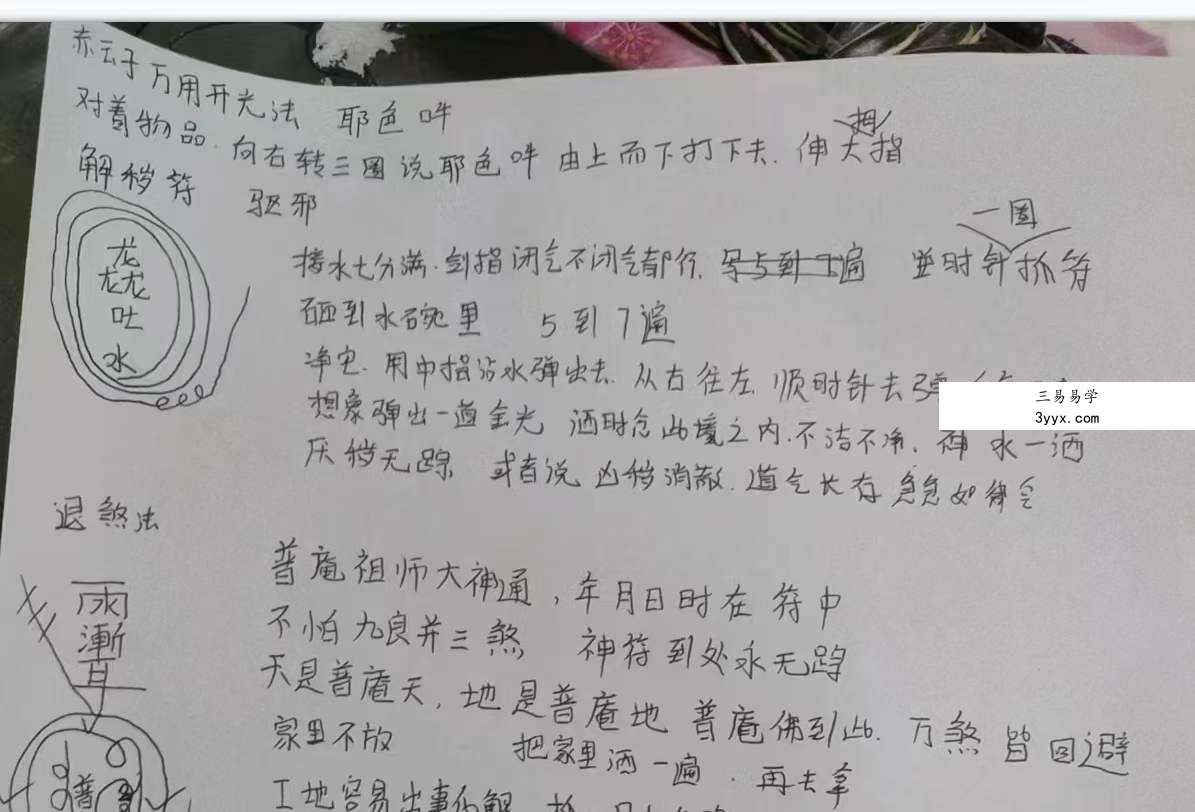 赤云子万用开光法 耶色吽
对着物品.向右转三圈说耶色吽 由上而下打下去.伸大拇指
解秽符 驱邪
龙
龙龙
吐
水
一圈
接水七分满.剑指闭气不闭气都行. 逆时针抓符
砸到水碗里 5到7遍
净宅.用中指沾水弹出去.从右往左 顺时针去弹
想象弹出一道金光 洒时念此境之内.不洁不净.神水一洒
厌秽无踪 或者说 凶秽消散.道气长存 急急如律令
三易易学
3yyx.com
退煞法
普庵祖师大神通,年月日时在符中
不怕九良并三煞 神符到处永无踪
天是普庵天,地是普庵地 普庵佛到此.万煞皆回避
家里不放 把家里洒一遍.再去拿
雨
渐
耳
普
工地容易出事